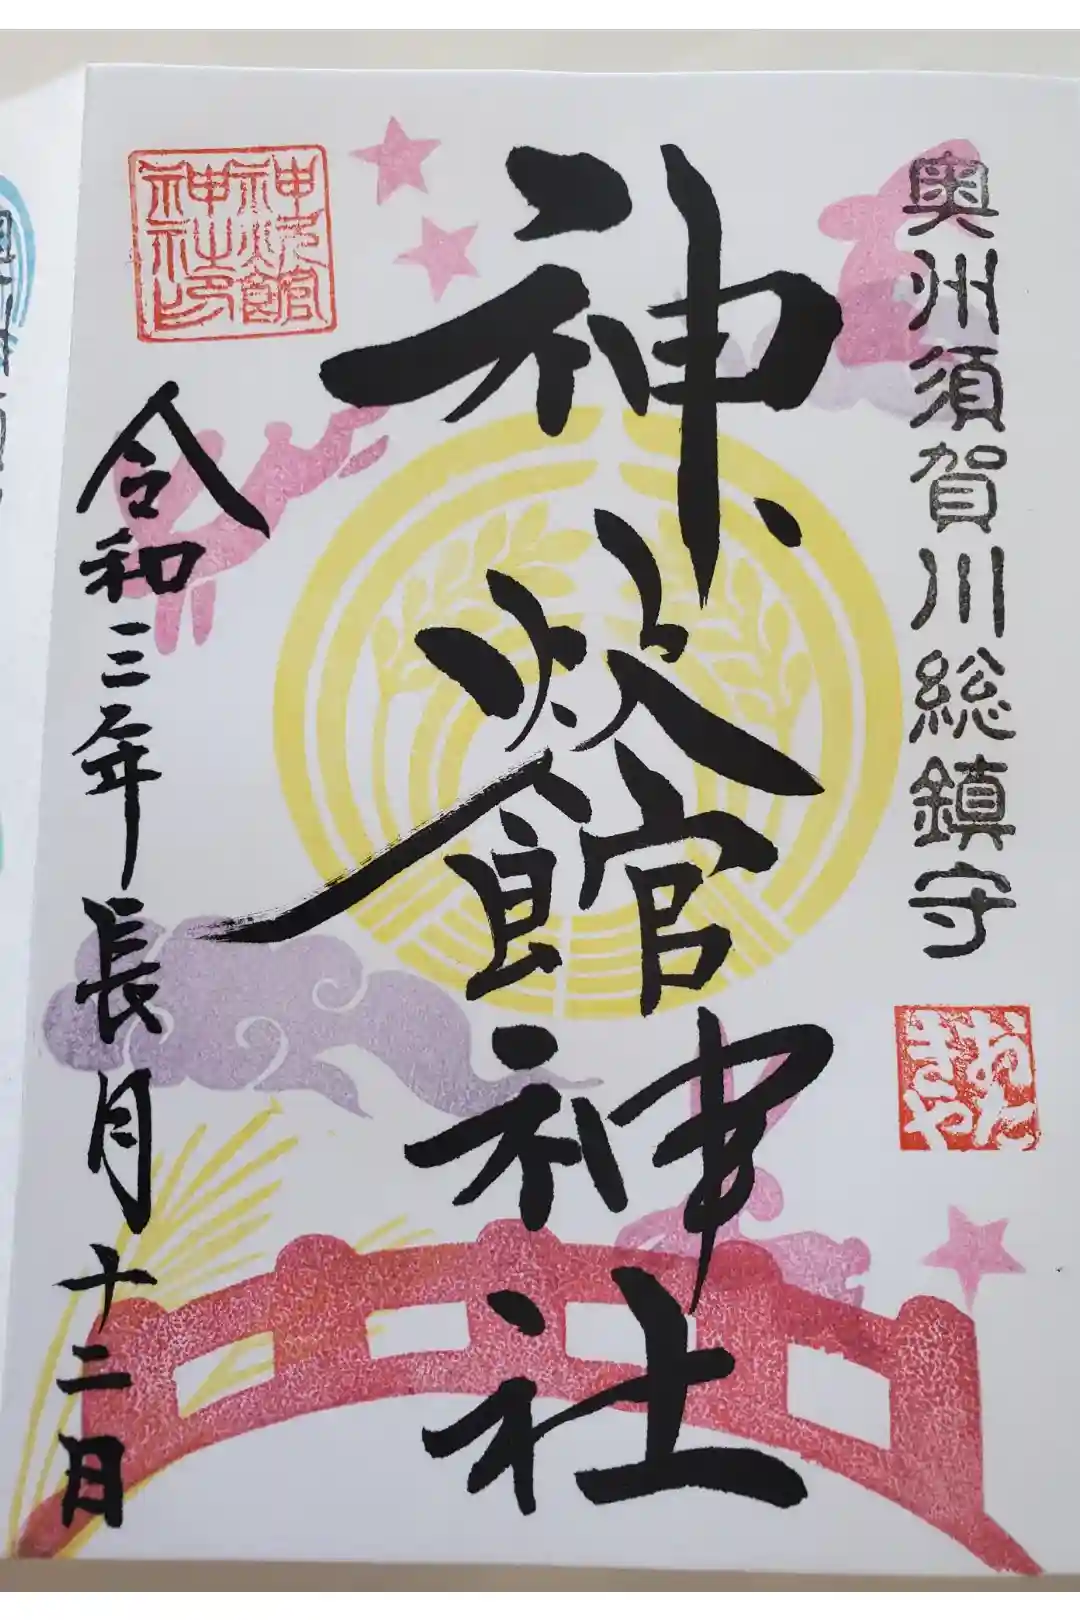 奥州須賀川総鎮守
おたきや
神炊館神社
神炊館神社印
令和三年長月十二日